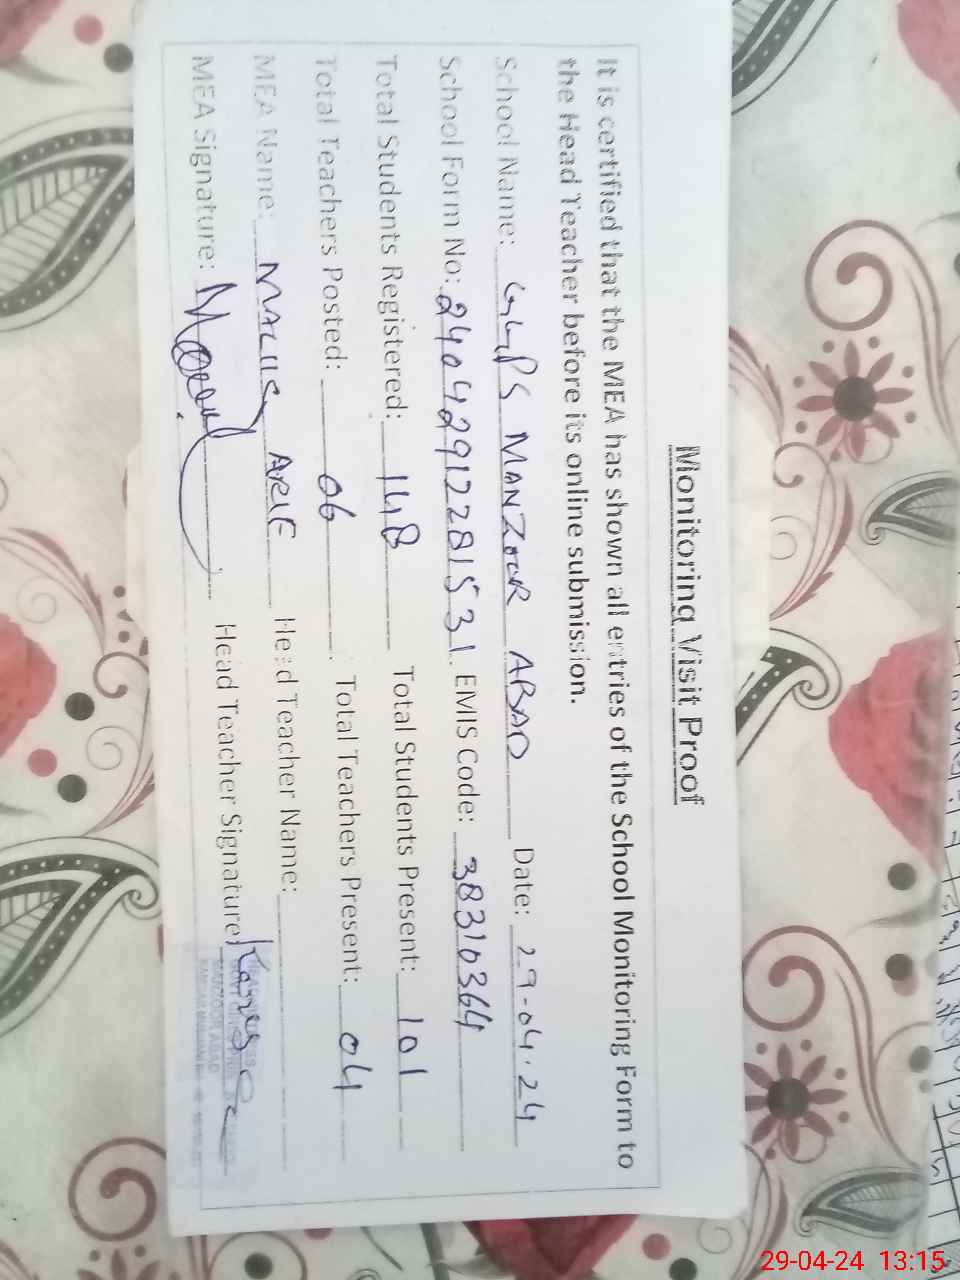 Monitoring Visit Proof
It is certified that the MEA has shown all entries of the School Monitoring Form to
the Head Teacher before its online submission.
School Name: GGPS MANZOOR ABAD Date: 29-04-24
School Form No: 24042912281531. EMIS Code: 38310364
Total Students Registered: 148 Total Students Present: 101
Total Teachers Posted: 06. Total Teachers Present: 04
MEA Name: ARIF Head Teacher Name:
MEA Signature: Head Teacher Signature
MANZOOR ABAD
29-04-24 13:15